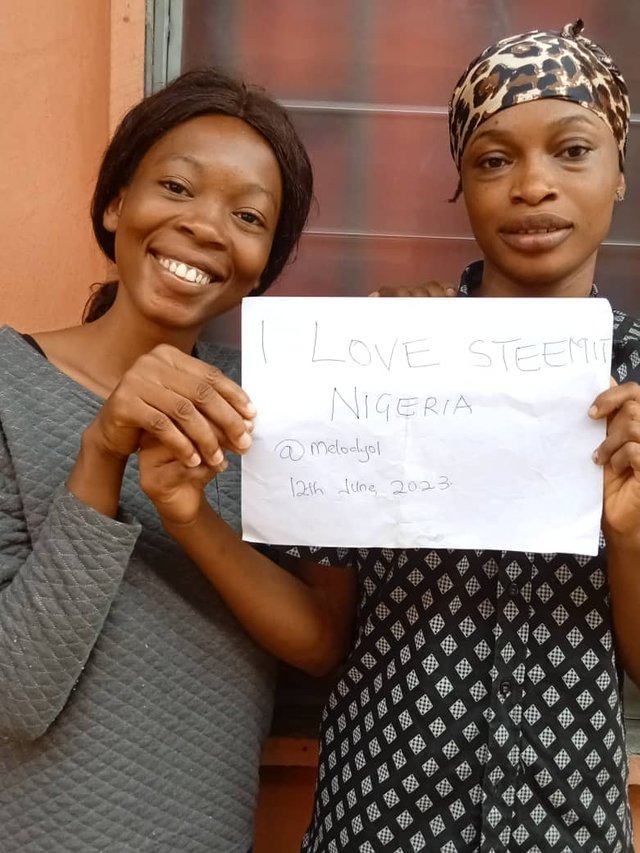 I LOVE STEEMIT
NIGERIA
@melodyol
12th June, 2023.